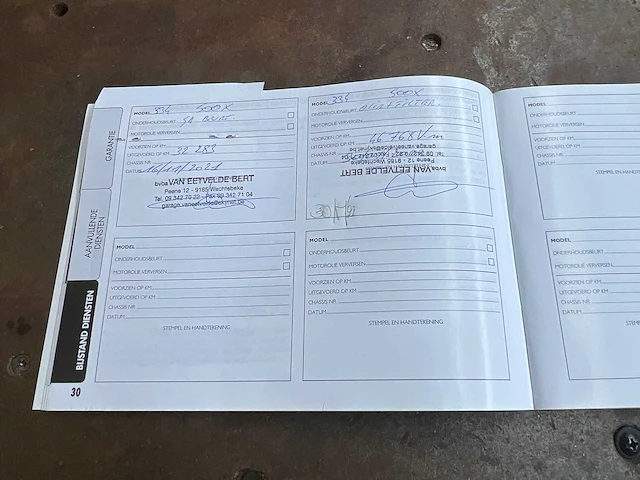 GARANTIE
AANVULLENDE
DIENSTEN
BIJSTAND DIENSTEN
30
MODEL 334 500X
ONDERHOUDSBEURT
MOTOROLIE VERVERSEN
VOORZIEN OP KM
UITGEVOERD OP KM 32 283
CHASSIS NR.
DATUM
bvba VAN EETVELDE BERT
Peene 12 - 9185 Wachtebeke
Tel. 09 342 70 22 - Fax 09 342 71 04
garage.vaneetvelde@skynet.be
MODEL 334 500X
ONDERHOUDSBEURT
MOTOROLIE VERVERSEN
VOORZIEN OP KM
UITGEVOERD OP KM 46 768 Km
CHASSIS NR.
DATUM
bvba VAN EETVELDE BERT
Peene 12 - 9185 Wachtebeke
garage.vaneetvelde@skynet.be
MODEL
ONDERHOUDSBEURT
MOTOROLIE VERVERSEN
VOORZIEN OP KM
UITGEVOERD OP KM
CHASSIS NR.
DATUM
MODEL
ONDERHOUDSBEURT
MOTOROLIE VERVERSEN
VOORZIEN OP KM
UITGEVOERD OP KM
CHASSIS NR.
DATUM
STEMPEL EN HANDTEKENING
MODEL
ONDERHOUDSBEURT
MOTOROLIE VERVERSEN
VOORZIEN OP KM
UITGEVOERD OP KM
CHASSIS NR.
DATUM
STEMPEL EN HANDTEKENING
MODEL
ONDERHOUDSBEURT
MOTOROLIE VERVERSEN
VOORZIEN OP KM
UITGEVOERD OP KM
CHASSIS NR.
DATUM
STEMPEL EN